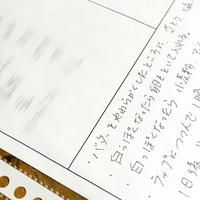 ・バターをやわらかくしたところに さとう・塩
・白っぽくなったら 卵をといて入れる。
・白っぽくなったら 小麦粉
・ラップにつつんで 1時
1日後